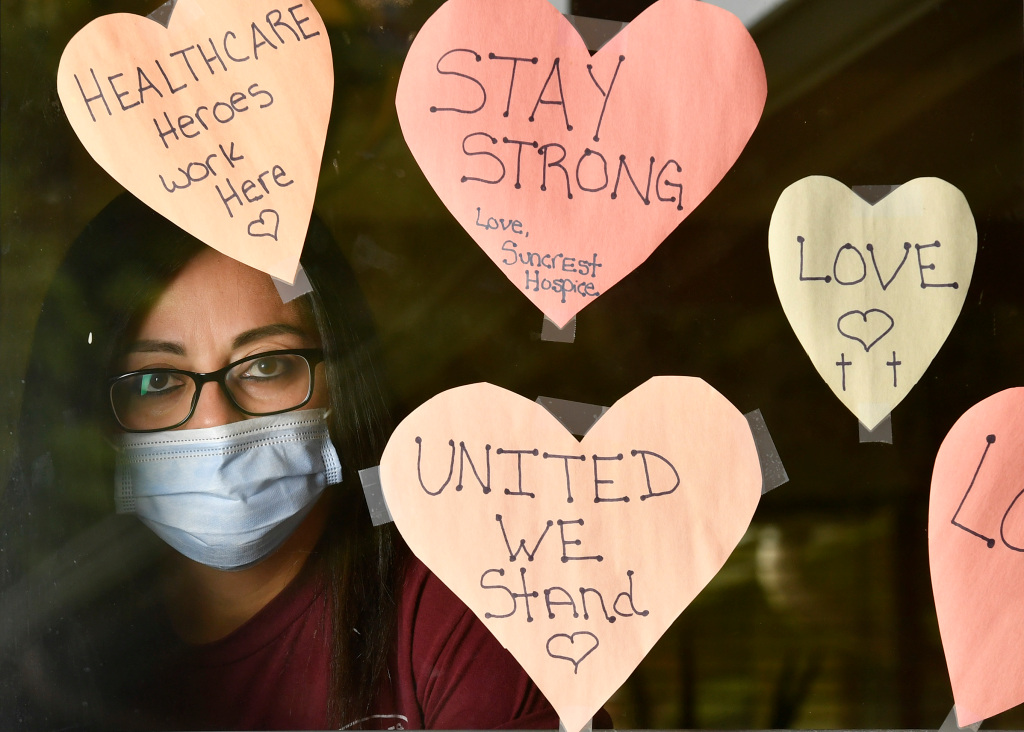 HEALTHCARE
Heroes
work
Here
STAY
STRONG
Love,
Suncrest
Hospice
LOVE
UNITED
WE
Stand